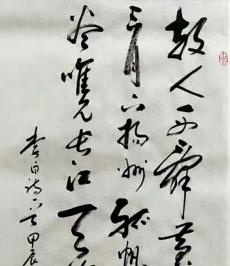 故人西辞黄
三月下扬州孤帆
尽唯见长江天
李白诗一首甲辰